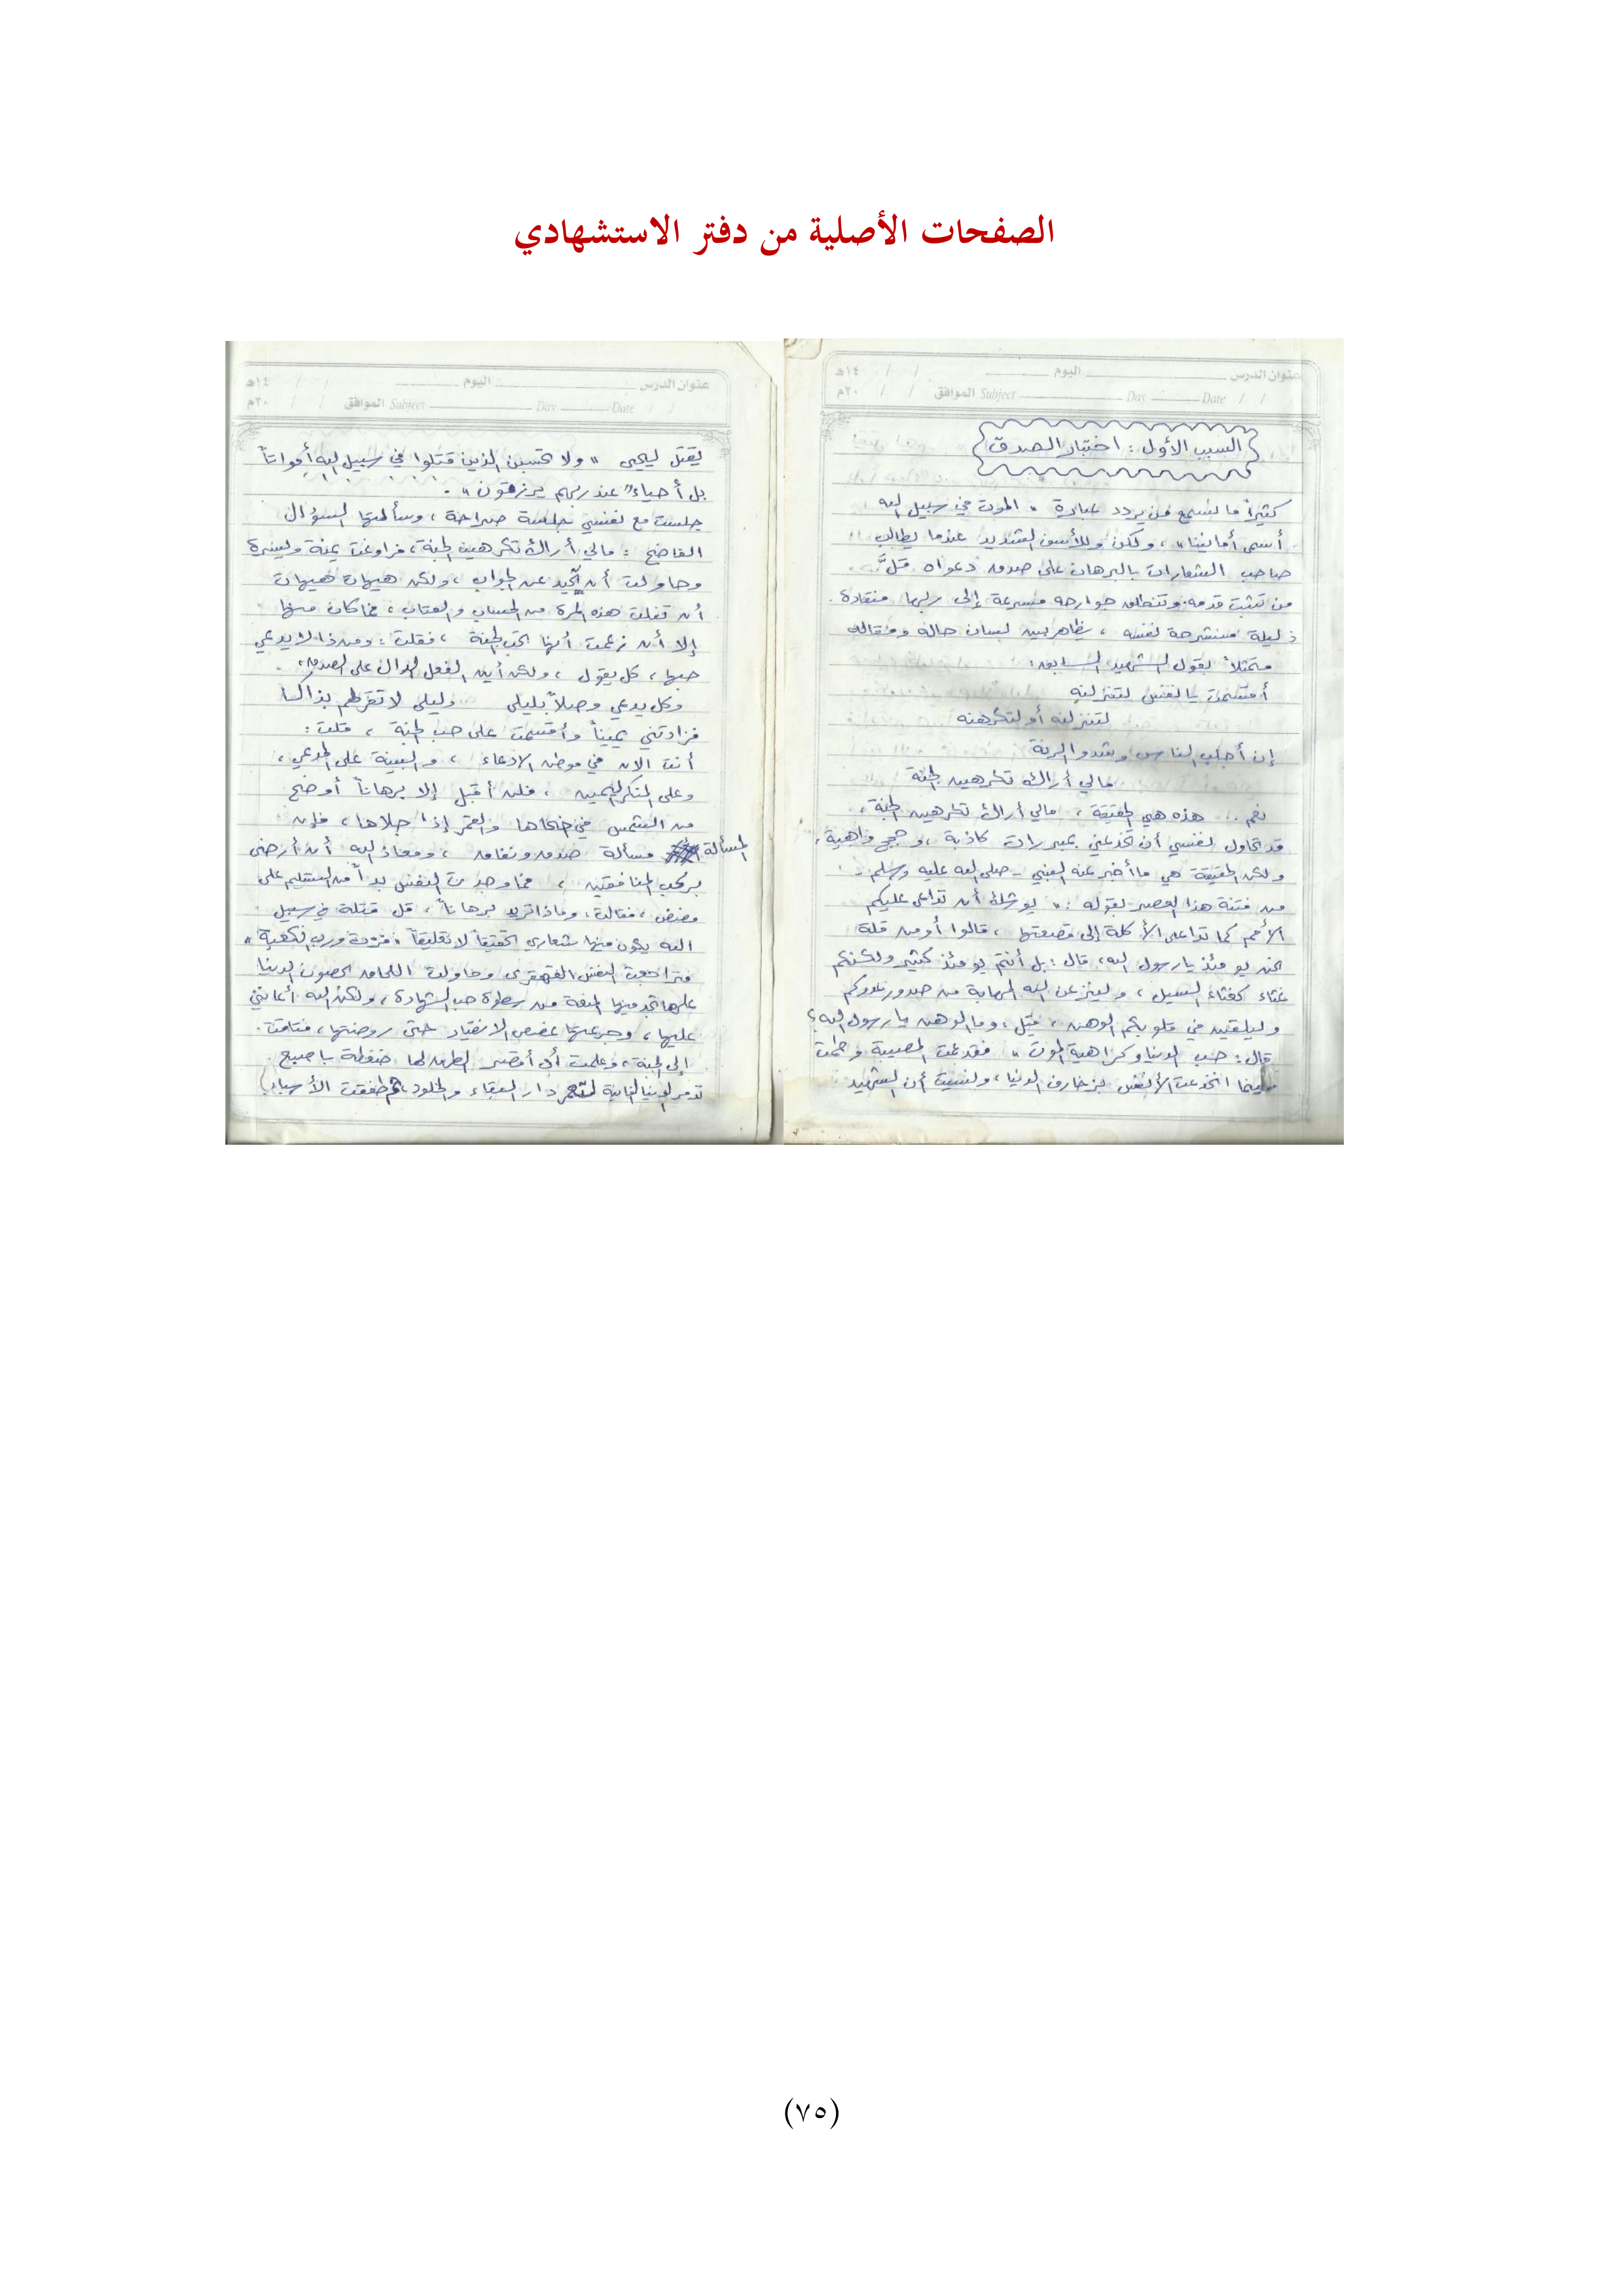 الصفحات الأصلية من دفتر الاستشهادي
عنوان الدرس اليوم / / ١٤هـ
Date / / Day Subject الموافق / / ٢٠م
السبب الأول : اختبار الصدق
كثيراً ما نسمع من يردد عبارة " الموت في سبيل الله
أسمى أمانينا " ، ولكن وللأسف الشديد عندما يطالب
صاحب الشعارات بالبرهان على صدق دعواه قلَّ
من تثبت قدمه وتنطلق جوارحه مسرعة إلى ربها منقادة
ذليلة منشرحة نفسه ، بلسان حاله ومقاله
متمثلاً بقول الشهيد السابق :
أقسمت يا نفس لتنزلنه
لتنزلنه أو لتكرهنه
إن أجلب الناس وشدوا الرنة
مالي أراك تكرهين الجنة
نعم .. هذه هي الحقيقة ، مالي أراك تكرهين الجنة ،
قد تحاول نفسي أن تخدعني بمبررات كاذبة ، وحجج واهية ،
ولكن الحقيقة هي ما أخبر عنه النبي - صلى الله عليه وسلم -
من فتنة هذا العصر بقوله : " يوشك أن تداعى عليكم
الأمم كما تداعى الأكلة إلى قصعتها ، قالوا أومن قلة
نحن يومئذ يا رسول الله ، قال : بل أنتم يومئذ كثير ولكنكم
غثاء كغثاء السيل ، ولينزعن الله المهابة من صدور عدوكم
وليلقين في قلوبكم الوهن ، قيل : وما الوهن يا رسول الله ؟
قال : حب الدنيا وكراهية الموت " فقد عمت المصيبة وطمت
انخدعت الأنفس بزخارف الدنيا ، ونسيت أن الشهيد
عنوان الدرس اليوم / / ١٤هـ
Date / / Day Subject الموافق / / ٢٠م
يقتل ليحيى " ولا تحسبن الذين قتلوا في سبيل الله أمواتاً
بل أحياءٌ عند ربهم يرزقون " .
جلست مع نفسي جلسة صراحة ، وسألتها السؤال
الفاضح : مالي أراك تكرهين الجنة ، فراوغت يمنة ويسرة
وحاولت أن تحيد عن الجواب ، ولكن هيهات هيهات
أن تفلت هذه المرة من الحساب والعتاب ، فما كان منها
إلا أن زعمت أنها تحب الجنة ، فقلت : ومن ذا لا يدعي
حبها ، كل يقول ، ولكن أين الفعل الدال على الصدق ،
وكل يدعي وصلاً بليلى وليلى لا تقر لهم بذاكا
فزادتني يميناً وأقسمت على حب الجنة ، قلت :
أنت الآن في موطن الادعاء ، والبينة على المدعي ،
وعلى المنكر اليمين ، فلن أقبل إلا برهاناً أوضح
من الشمس في ضحاها والقمر إذا جلاها ، فإن
المسألة مسألة صدق ونفاق ، ومعاذ الله أن أرضى
بركب المنافقين ، فما وجدت النفس بداً من التسليم على
مضض ، فقالت : وماذا تريد برهاناً ، قل قتلة في سبيل
الله يكون منها شعاري تحقيقاً لا تعليقاً " فزت ورب الكعبة "
فتراجعت النفس القهقرى وحاولت اللحاق بحصون الدنيا
علها تجد فيها المنعة من سطوة حب الشهادة ، ولكن الله أعانني
عليها ، وجرعتها غصص الانقياد حتى روضتها ، فتاقت
إلى الجنة ، وعلمت أن أقصر الطرق لها ضغطة بإصبع
تدمر الدنيا الفانية دار البقاء والخلود ، طفقت الأسباب
(٧٥)